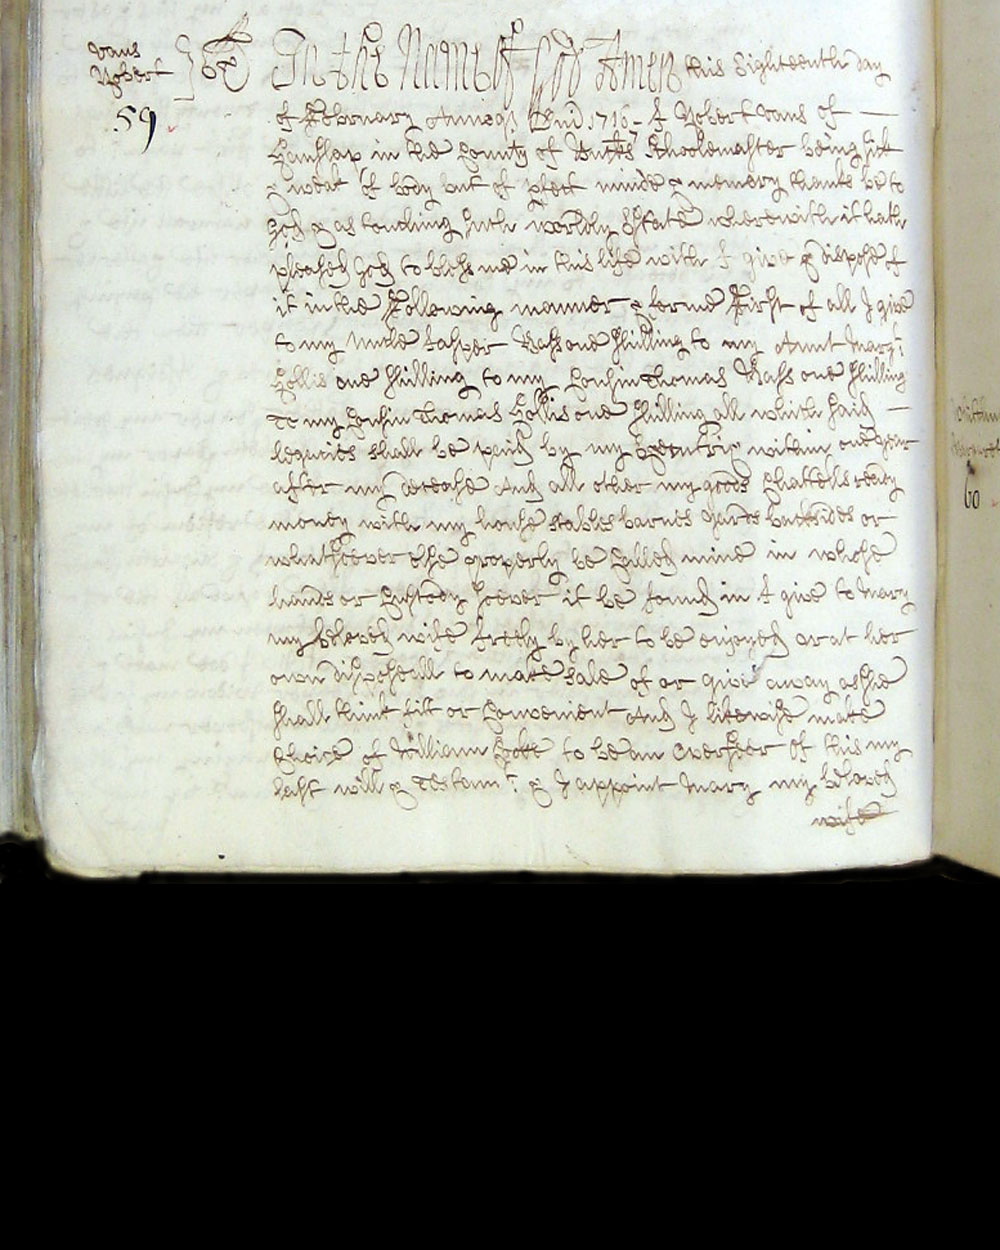 Vans
Robert
59
In the Name of God Amen this Eighteenth day
of February Annoq; Dnd 1716 - I Robert Vans of
Hanslap in the County of Bucks Schoolemaster being sick
& weak of body but of pfect minde & memory thanks be to
God & as touching such worldly Estate wherewith it hath
pleased God to bless me in this life with I give & dispose of
it in the Following manner & forme First of all I give
to my uncle Jasper Vass one shilling to my Aunt Mary
Hollis one shilling to my Cousin Thomas Vass one shilling
to my Cousin Thomas Hollis one shilling all which said
legacies shall be paid by my Executrix within one year
after my decease And all other my goods Chattells ready
money with my house stables barnes yards backsides or
whatsoever else properly be Called mine in whose
hands or Custody soever it be found in I give to Mary
my beloved wife freely by her to be enjoyed or at her
own disposeall to make sale of or give away as she
shall think fitt or Convenient And I likewise make
Choice of William to be an Overseer of this my
last will & Testamt: & I appoint Mary my beloved
wife
60